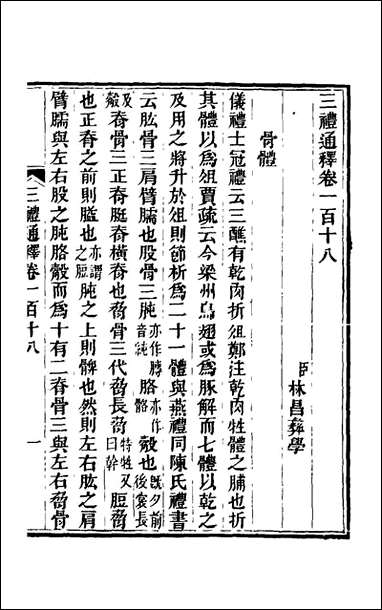 三禮通釋卷一百十八
臣林昌彝學
骨體
儀禮士冠禮云三醮有乾肉折俎鄭注乾肉牲體之脯也折
其體以爲俎賈疏云今梁州烏翅或爲豚解而七體以乾之
及用之將升於俎則節折爲二十一體與燕禮同陳氏禮書
云肱骨三肩臂臑也股骨三肫音純亦作膊胳亦作骼觳也旣夕前後裳長
及觳脊骨三正脊脡脊橫脊也脅骨三代脅長脅特牲又曰幹短脅
也正脊之前則膉也亦謂之脰肫之上則髀也然則左右肱之肩
臂臑與左右股之肫胳觳而爲十有二脊骨三與左右脅骨
三禮通釋卷一百十八
一